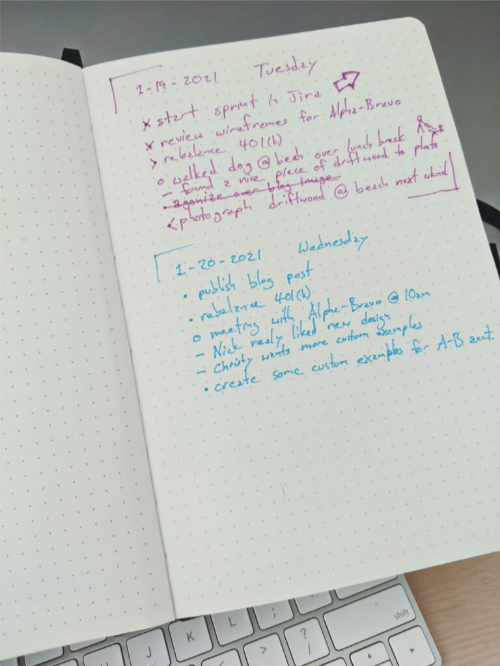 1-19-2021 Tuesday
x start sprint in Jira
x review wireframes for Alpha-Bravo
> rebalance 401(k)
o walked dog @ beach over lunch break
- found a nice piece of driftwood to photo
• agonize over blog image
< photograph driftwood @ beach next wknd
1-20-2021 Wednesday
• publish blog post
• rebalance 401(k)
o meeting with Alpha-Bravo @ 10am
- Nick really liked new design
- Christy wants more custom examples
• create some custom examples for A-B acct.
J K L : ; "
M < , > . ? /
shift